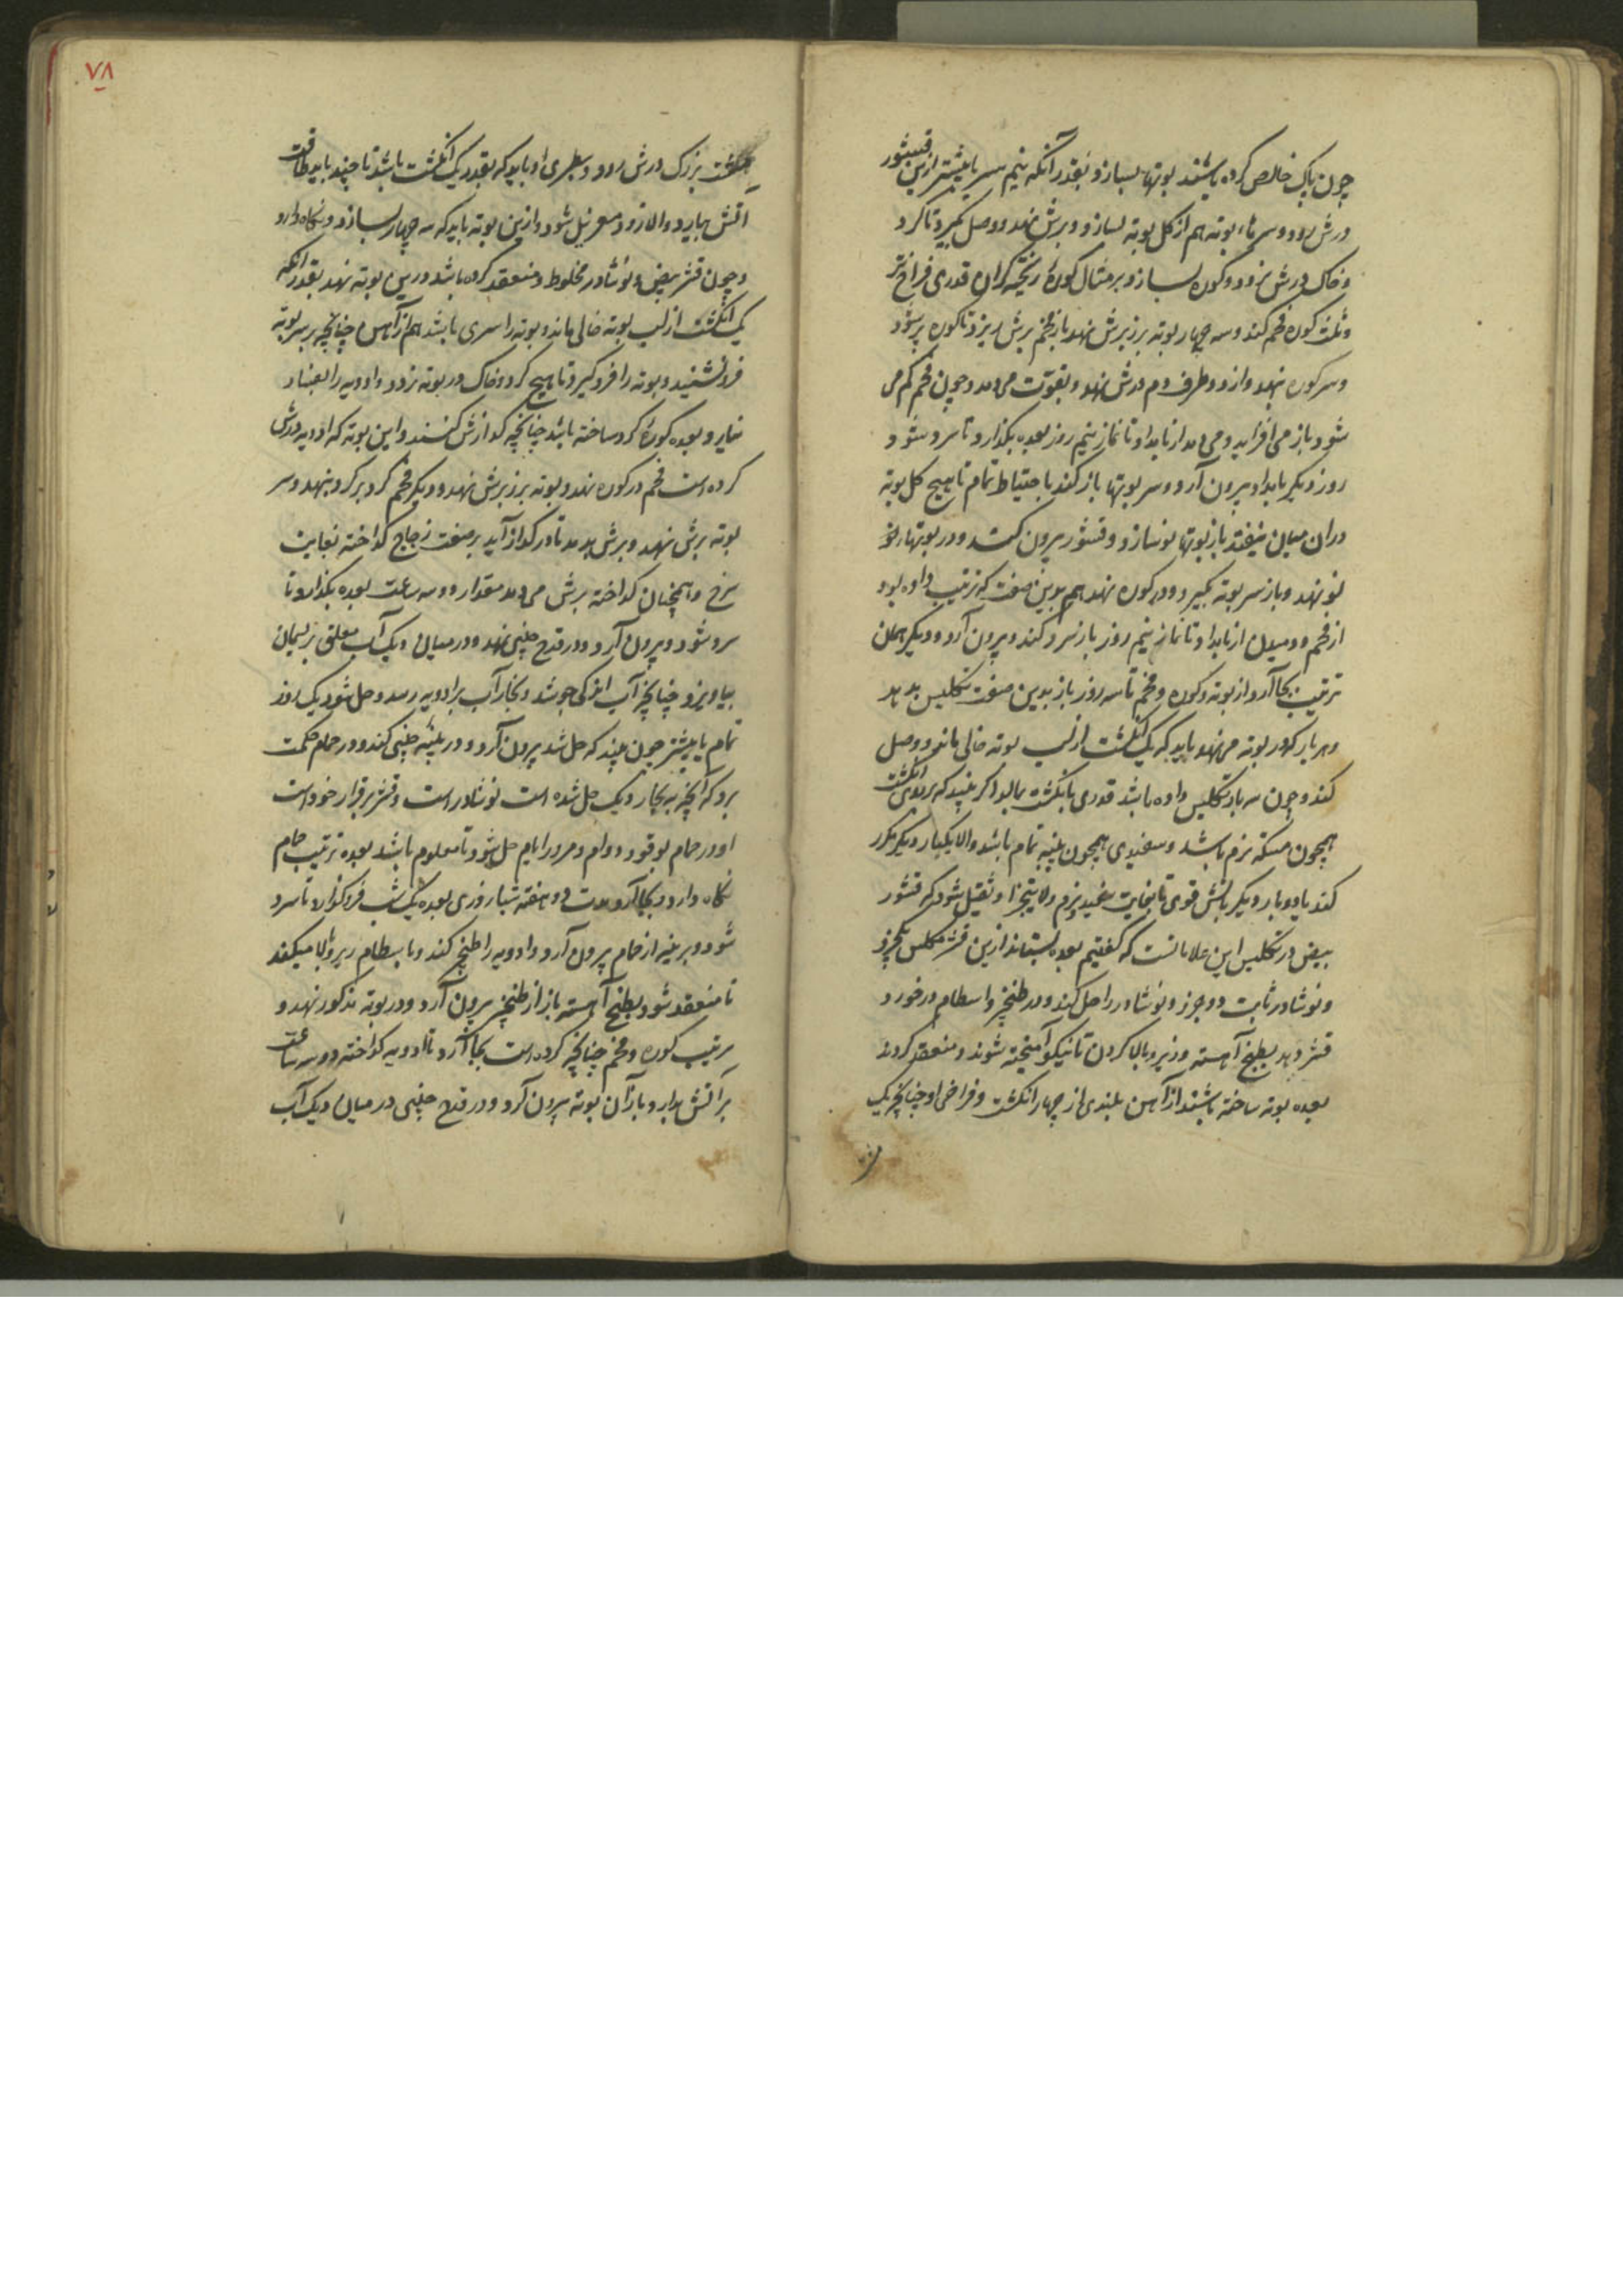 چون پاک خالص کرده باشند بوتها بسازد بقدر آنکه نیم سیر یا بیشتر ازین قشور
درش رود و سرهاء بوته هم از کل بوته بسازد و برش نهد و وصل گیرد تا کرد
و خاک درش نرود و کوره بسازد بر مثال کورهٔ ریخته کران قدری فراخ تر
و ثلث کوره فحم کند و سه چهار بوته برزبرش نهد باز فحم برش ریزد تا کوره پر شود
و سر کوره نهد و از دو طرف دم درش نهد و بقوت می‌دمد و چون فحم کم می
شود باز می افزاید و می دمد از بامداد تا نماز نیم روز بعده بگذارد تا سرد شود
روز دیگر بامداد بیرون آرد و سر بوتها باز کند باحتیاط تمام تا هیچ کل بوته
دران میان نیفتد باز بوتها نو سازد و قشور بیرون کشد و در بوتهاء نو
نو نهد و باز سر بوته گیرد و در کوره نهد هم بدین صفت که ترتیب داده بود
از فحم و دمیدن از بامداد تا نماز نیم روز باز سرد کند و بیرون آرد و دیگر همان
ترتیب بجا آرد از بوته و کوره و فحم تا سه روز باز بدین صفت تکلیس بدهد
و هر بار که در بوته می نهد باید که یک انگشت از لب بوته خالی ماند و وصل
کند و چون سه بار تکلیس داده باشد قدری بانگشت بمالد اگر بیند که بر انگشت
همچون مسکه نرم باشد و سفیدی همچون پنبه تمام باشد والا یکبار دیگر مکرر
کند یا دو بار دیگر بآتش قوی تا بغایت سفید و نرم و لایتجزا و ثقیل شود که قشور
بیض در تکلیس این علامتست که گفتیم بعده بستاند ازین قشر مکلس یکجزو
و نوشادر ثابت دو جزو و نوشادر را حل کند و در طنجیر و اسطام در خورد
قشر دهد بطبخ آهسته و زیر و بالا کردن تا نیکو آمیخته شوند و منعقد گردند
بعده بوته ساخته باشند از آهن بلندی از چهار انگشت و فراخی او چنانچه یک
۷۸
انگشت بزرگ درش رود و سطبری او باید که بقدر یک انگشت باشد تا چند باید طاقت
آتش بیارد و الا زود شود و ازین بوته باید که سه چهار بسازد و نگاه دارد
و چون قشر بیض و نوشادر مخلوط و منعقد کرده باشد درین بوته نهد بقدر آنکه
یک انگشت از لب بوته خالی ماند و بوته را سری باشد هم از آهن چنانچه بر سر بوته
فرو نشیند و بوته را فرو گیرد تا هیچ کرد و خاک در بوته نرود و ادویه را بفساد
نیارد و بعده کورهٔ کرد ساخته باشد چنانچه گدازش کنند و این بوته که ادویه درش
کرده است فحم در کوره نهد و بوته بر زبرش نهد و دیگر فحم گرد بر گرد بنهد و سر
بوته برش نهد و برش بدمد تا در گداز آید بر صفت زجاج گداخته بغایت
سرخ و همچنان گداخته برش می دمد مقدار دو سه ساعت بعده بگذارد تا
سرد شود و بیرون آرد و در قدح چینی نهد و در میان دیک آب معلق بریسمان
بیاویزد چنانچه آب اندکی جوشد و بخار آب بر ادویه رسد و حل شود یک روز
تمام یا بیشتر چون بیند که حل شد بیرون آرد و در شیشه چینی کند و در حمام حکمت
برد که آنچه به بخار دیک حل شده است نوشادر است و قشر برقرار خود است
او در حمام بوقود دوام و مرور ایام حل شود تا معلوم باشد بعده ترتیب حمام
نگاه دارد و بجا آرد مدت دو هفته شبانروزی بعده یک شب فرو گذارد تا سرد
شود و بربنیه از حمام بیرون آرد و ادویه را طبخ کند و باسطام زیر و بالا میکند
تا منعقد شود بطبخ آهسته باز از طنجیر بیرون آرد و در بوته مذکور نهد و
ترتیب کوره و فحم چنانچه کرده است بجا آرد تا ادویه گداخته دو سه ساعت
بر آتش بدارد و باز آن بوته بیرون آرد و در قدح چینی در میان دیک آب